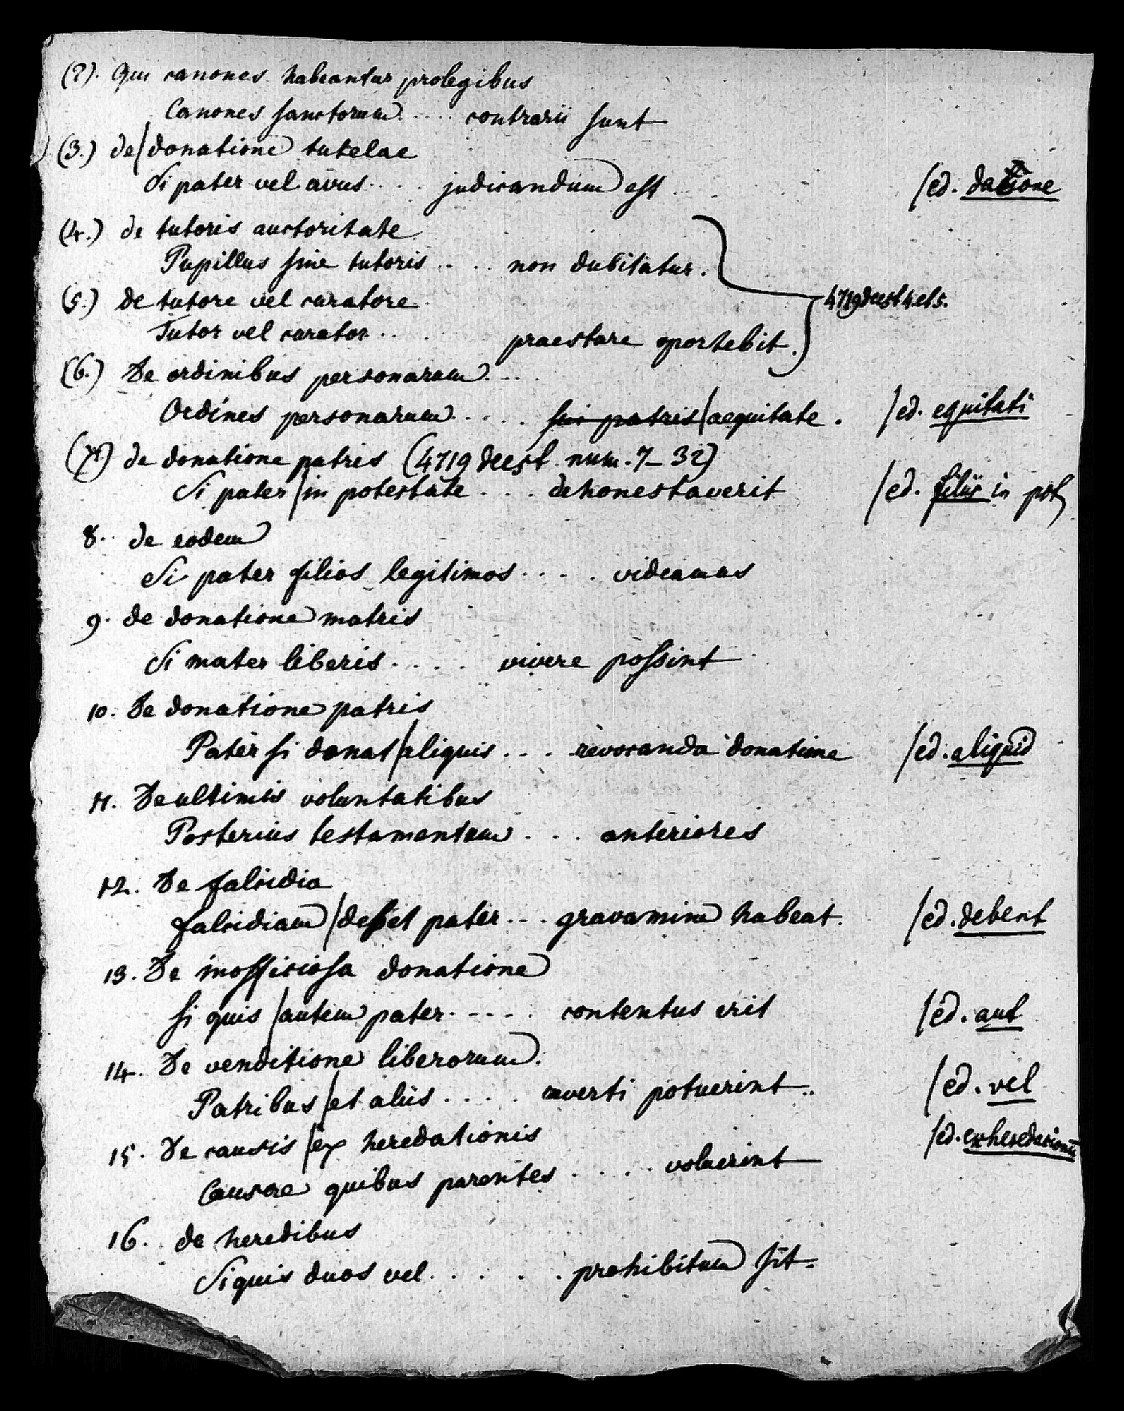 (2). Qui canones habeantur prolegibus
Canones sanctorum .... contrarii sunt
(3.) de/donatione tutelae
Si pater vel avus .... judicandum est /ed. datione
(4.) de tutoris auctoritate
Pupillus sine tutoris .... non dubitatur.
(5.) de tutore vel curatore 4719 deest 4 et 5.
Tutor vel curator ... praestare oportebit.
(6.) De ordinibus personarum ...
Ordines personarum .... sui patris/aequitate. /ed. equitati
(7) de donatione patris (4719 deest num. 7-32)
Si pater/in potestate .... dehonestaverit /ed. filiis in pot
8. de eodem
Si pater filios legitimos .... videamus
9. de donatione matris
Si mater liberis .... vivere possint
10. De donatione patris
Pater si donat/aliquis ... revocanda donatione /ed. aliquid
11. De ultimis voluntatibus
Posterius testamentum ... anteriores
12. De falcidia
falcidiam/debet pater ... gravamine habeat. /ed. debent
13. De inofficiosa donatione
si quis/autem pater ..... contentus erit /ed. aut
14. De venditione liberorum.
Patribus/et aliis .... averti potuerint .. /ed. vel
15. De causis/ex heredationis /ed. exheredacionis
Causae quibus parentes .... voluerint
16. de heredibus
Si quis duos vel ..... prohibitum sit =